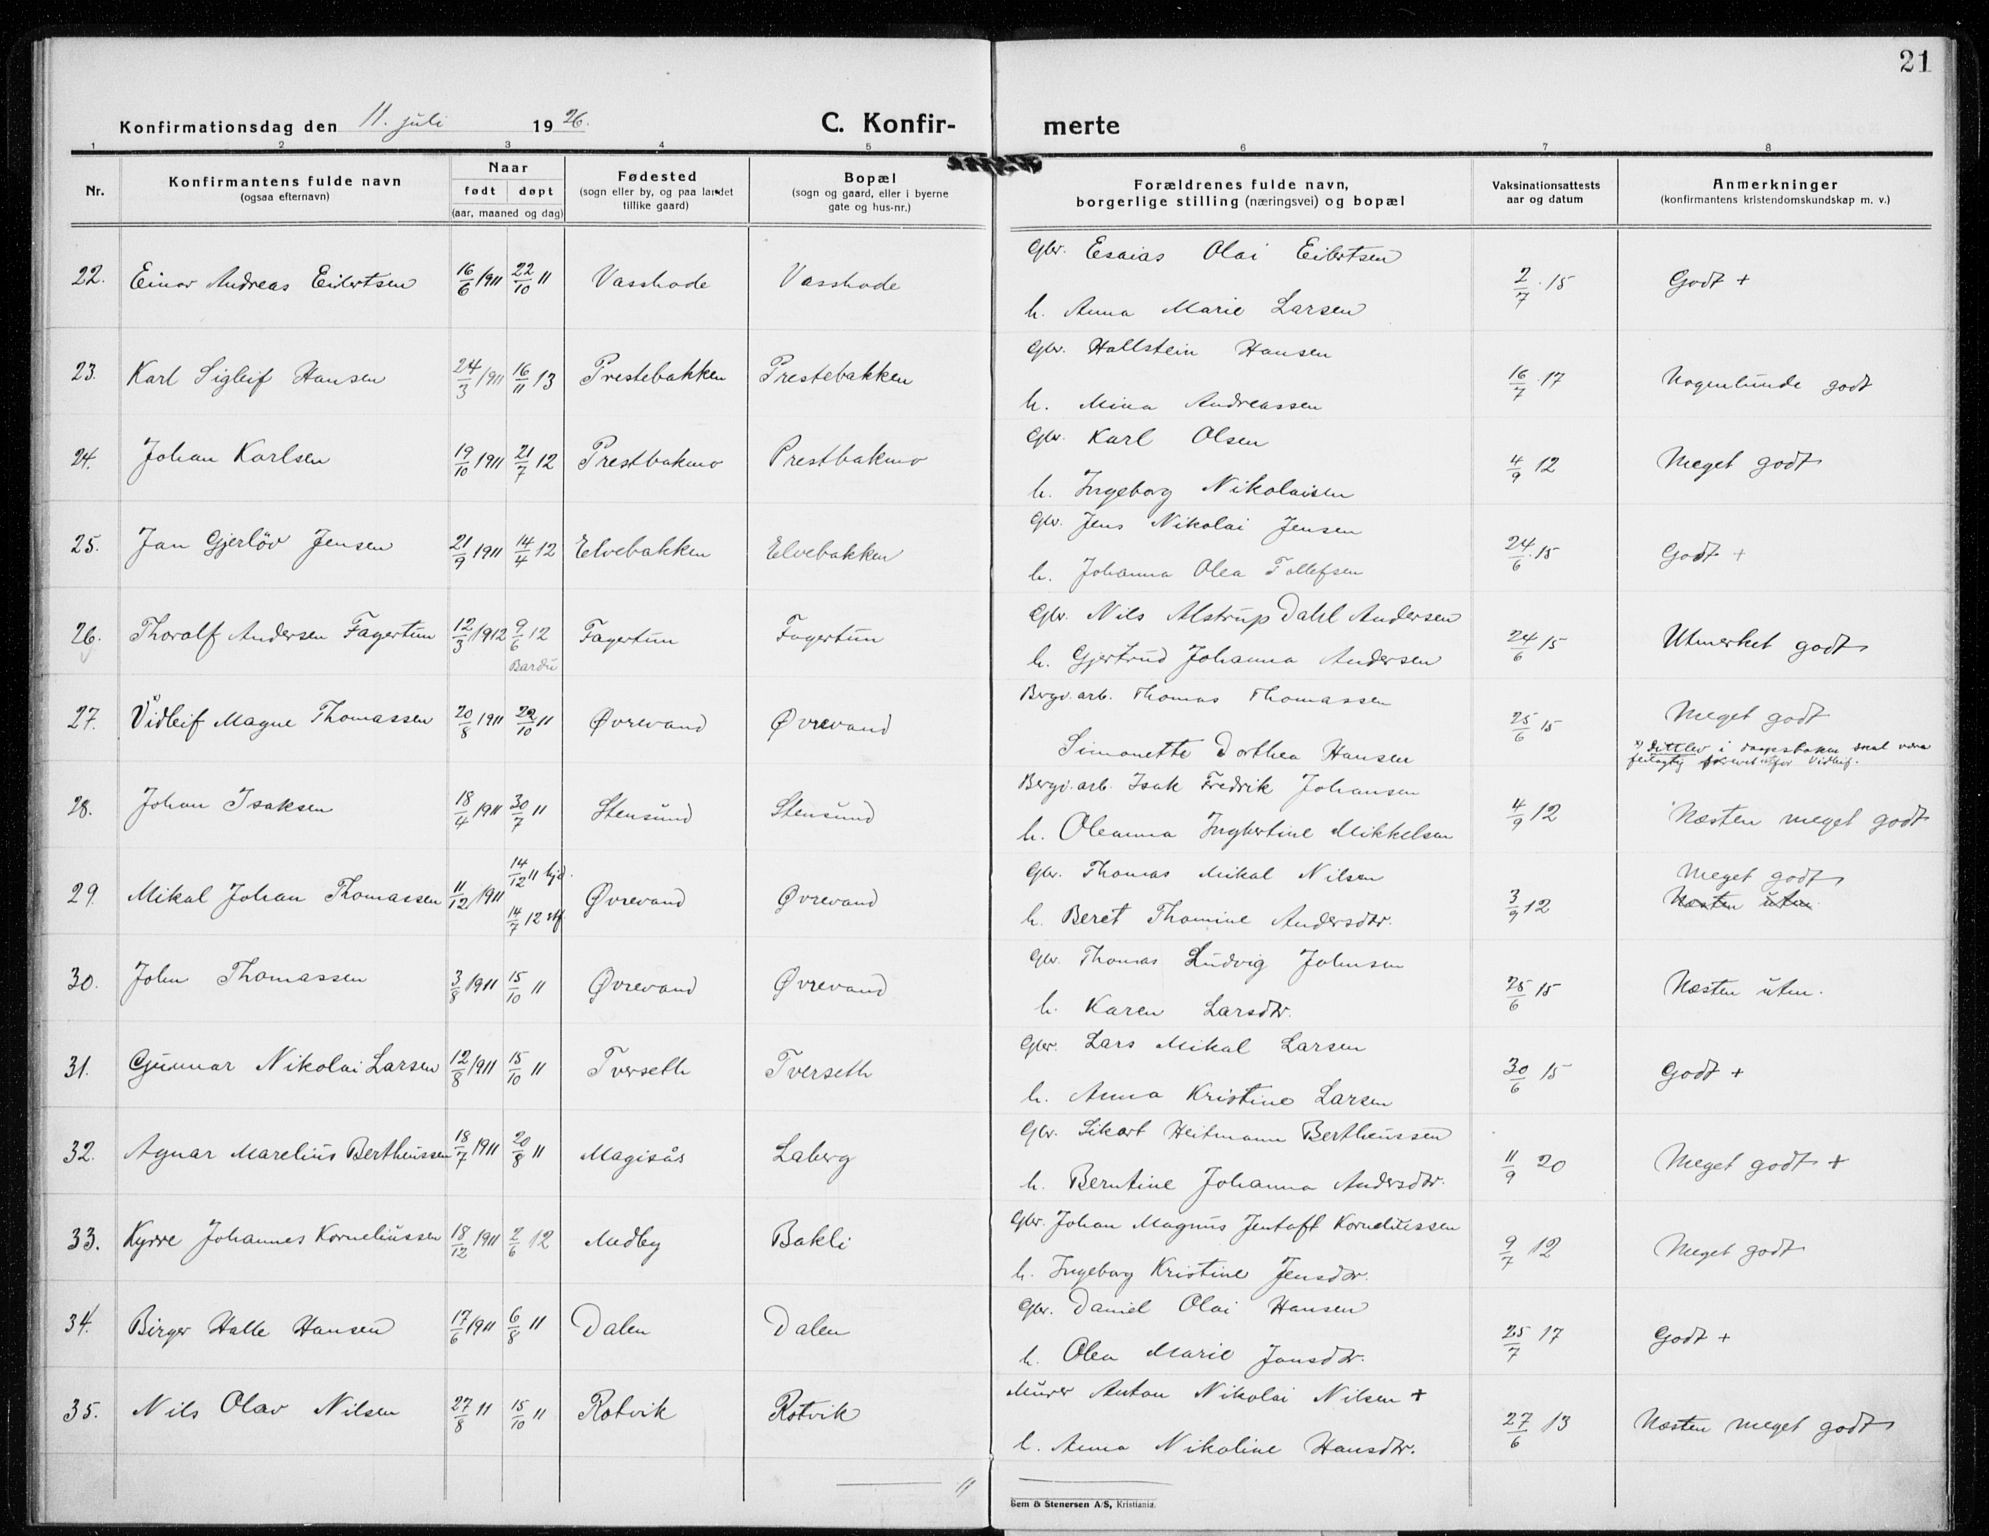 21
Konfirmationsdag den 11. juli 1926.
C. Konfir- merte
1 2 3 4 5 6 7 8
Nr.
Konfirmantens fulde navn
(ogsaa efternavn)
Naar
født døpt
(aar, maaned og dag)
Fødested
(sogn eller by, og paa landet
tillike gaard)
Bopæl
(sogn og gaard, eller i byerne
gate og hus-nr.)
Forældrenes fulde navn,
borgerlige stilling (næringsvei) og bopæl
Vaksinationsattests
aar og datum
Anmerkninger
(konfirmantens kristendomskundskap m. v.)
Gbr. Esaias Olai Eibertsen
22. Einar Andreas Eibertsen 16/6 1911 22/10 11 Vasshode Vasshode 2/7 15 Godt +
h. Anna Marie Larsen
Gbr. Hallstein Hansen
23. Karl Sigleif Hansen 24/3 1911 16/11 13 Prestebakken Prestebakken 16/7 17 Nogenlunde godt
h. Mina Andreassen
Gbr. Karl Olsen
24. Johan Karlsen 19/10 1911 21/7 12 Prestbakmo Prestbakmo 4/9 12 Meget godt
h. Ingeborg Nikolaisen
Gbr. Jens Nikolai Jensen
25. Jan Gjerløv Jensen 21/9 1911 14/4 12 Elvebakken Elvebakken 24/6 15 Godt +
h. Johanna Olea Tollefsen
Gbr. Nils Alstrup Dahl Andersen
26. Thoralf Andersen Fagertun 12/3 1912 9/6 12 Fagertun Fagertun 24/6 15 Utmerket godt
Bardu
h. Gjertrud Johanna Andersen
Bergv. arb. Thomas Thomassen
27. Vidleif Magne Thomassen 20/8 1911 22/10 11 Øvrevand Øvrevand 25/6 15 Meget godt
x) Dittlev i daapsboken skal være
feilagtig skrevet for Vidleif.
Simonette Dorthea Hansen
Bergv. arb. Isak Fredrik Johansen
28. Johan Isaksen 18/4 1911 30/7 11 Stensund Stensund 4/9 12 Næsten meget godt
h. Oleanna Ingbertine Mikkelsen
Gbr. Thomas Mikal Nilsen
14/12 11 hjd. Meget godt
29. Mikal Johan Thomassen 11/12 1911 14/7 12 stf. Øvrevand Øvrevand 3/9 12 Næsten utm.
h. Beret Thomine Andersdtr.
Gbr. Thomas Ludvig Johnsen
30. John Thomassen 3/8 1911 15/10 11 Øvrevand Øvrevand 25/6 15 Næsten utm.
h. Karen Larsdtr.
Gbr. Lars Mikal Larsen
31. Gunnar Nikolai Larsen 12/8 1911 15/10 11 Tverseth Tverseth 30/6 15 Godt +
h. Anna Kristine Larsen
Gbr. Sikart Heitmann Bertheussen
32. Agnar Marelius Bertheussen 18/7 1911 20/8 11 Magisås Laberg 11/9 20 Meget godt +
h. Berntine Johanna Andersdtr.
Gbr. Johan Magnus Jentoft Korneliussen
33. Kyrre Johannes Korneliussen 18/12 1911 2/6 12 Medby Bakli 9/7 12 Meget godt
h. Ingeborg Kristine Jensdtr.
Gbr. Daniel Olai Hansen
34. Birger Halle Hansen 17/6 1911 6/8 11 Dalen Dalen 25/7 17 Godt +
h. Olea Marie Jonsdtr.
Murer Anton Nikolai Nilsen +
35. Nils Olav Nilsen 27/8 11 15/10 11 Rotvik Rotvik 27/6 13 Næsten meget godt
h. Anna Nikoline Hansdtr.
Sem & Stenersen A/S, Kristiania.